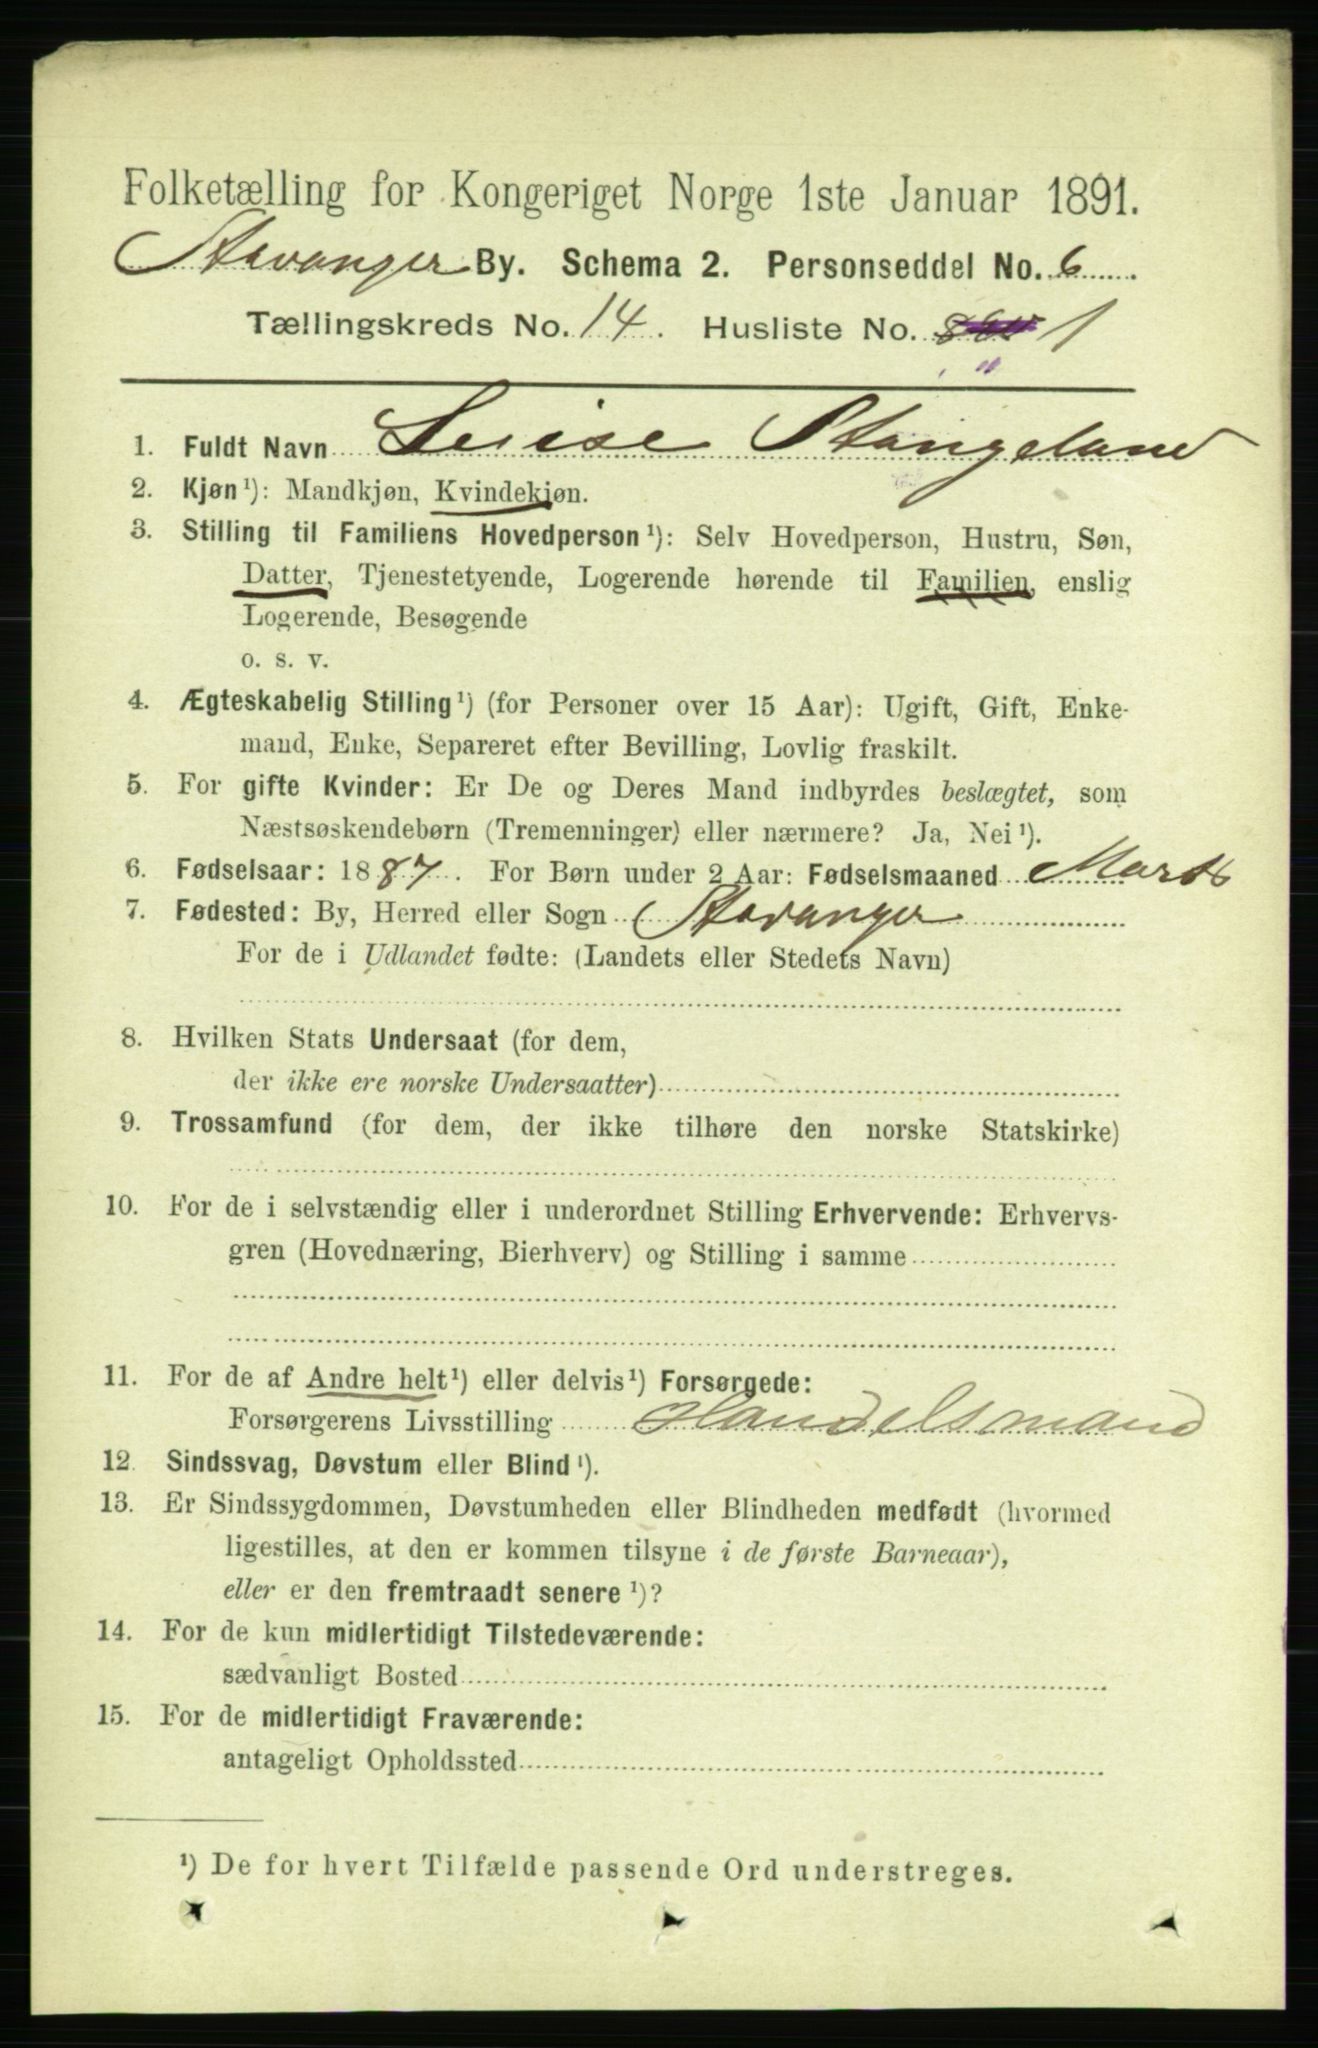 Folketælling for Kongeriget Norge 1ste Januar 1891.
Stavanger By. Schema 2. Personseddel No. 6
Tællingskreds No. 14. Husliste No. 1
1. Fuldt Navn Lerise Stangeland
2. Kjøn ¹): Mandkjøn, Kvindekjøn.
3. Stilling til Familiens Hovedperson ¹): Selv Hovedperson, Hustru, Søn,
Datter, Tjenestetyende, Logerende hørende til Familien, enslig
Logerende, Besøgende
o. s. v.
4. Ægteskabelig Stilling ¹) (for Personer over 15 Aar): Ugift, Gift, Enke-
mand, Enke, Separeret efter Bevilling, Lovlig fraskilt.
5. For gifte Kvinder: Er De og Deres Mand indbyrdes beslægtet, som
Næstsøskendebørn (Tremenninger) eller nærmere? Ja, Nei ¹).
6. Fødselsaar: 1887. For Børn under 2 Aar: Fødselsmaaned Marts
7. Fødested: By, Herred eller Sogn Stavanger
For de i Udlandet fødte: (Landets eller Stedets Navn)
8. Hvilken Stats Undersaat (for dem,
der ikke ere norske Undersaatter)
9. Trossamfund (for dem, der ikke tilhøre den norske Statskirke)
10. For de i selvstændig eller i underordnet Stilling Erhvervende: Erhvervs-
gren (Hovednæring, Bierhverv) og Stilling i samme
11. For de af Andre helt ¹) eller delvis ¹) Forsørgede:
Forsørgerens Livsstilling Handelsmand
12. Sindssvag, Døvstum eller Blind ¹).
13. Er Sindssygdommen, Døvstumheden eller Blindheden medfødt (hvormed
ligestilles, at den er kommen tilsyne i de første Barneaar),
eller er den fremtraadt senere ¹)?
14. For de kun midlertidigt Tilstedeværende:
sædvanligt Bosted
15. For de midlertidigt Fraværende:
antageligt Opholdssted
¹) De for hvert Tilfælde passende Ord understreges.